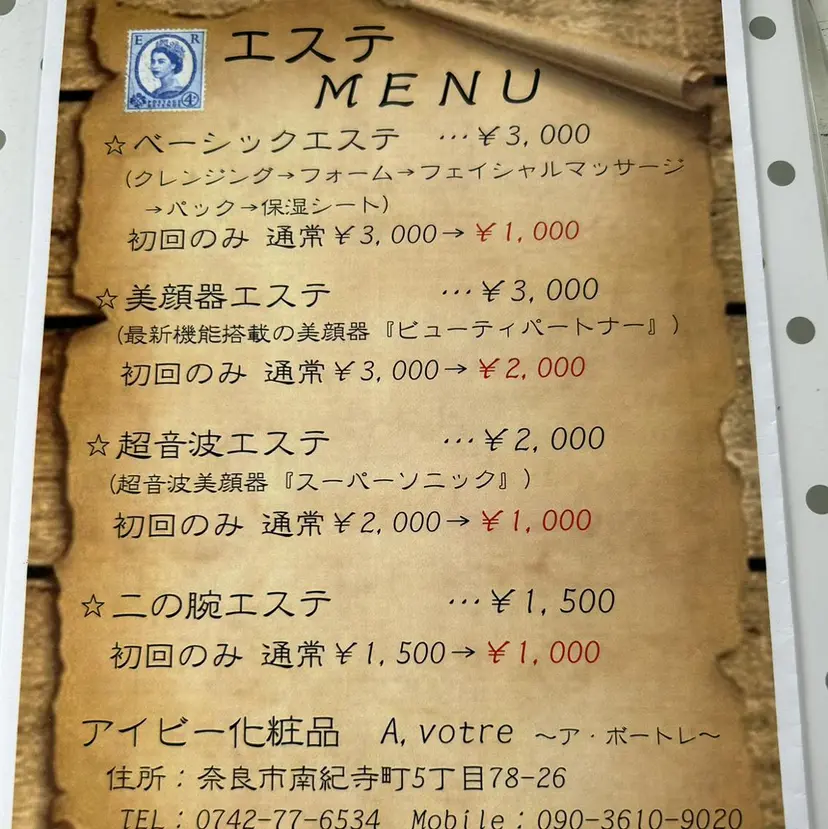 E R
エステ
MENU
☆ベーシックエステ …¥3,000
(クレンジング→フォーム→フェイシャルマッサージ
→パック→保湿シート)
初回のみ 通常¥3,000→¥1,000
☆美顔器エステ …¥3,000
(最新機能搭載の美顔器『ビューティパートナー』)
初回のみ 通常¥3,000→¥2,000
☆超音波エステ …¥2,000
(超音波美顔器『スーパーソニック』)
初回のみ 通常¥2,000→¥1,000
☆二の腕エステ …¥1,500
初回のみ 通常¥1,500→¥1,000
アイビー化粧品 A,votre ～ア・ボートレ～
住所：奈良市南紀寺町5丁目78-26
TEL：0742-77-6534 Mobile：090-3610-9020